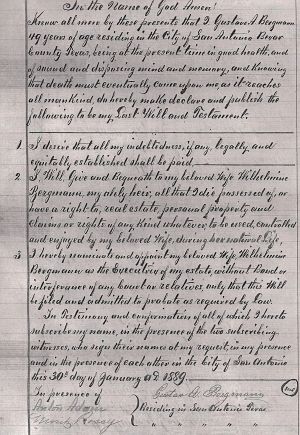 In the Name of God Amen!
Know all men by these presents that I Gustav A Bergmann
49 years of age residing in the City of San Antonio Bexar
County Texas, being at the present time in good health, and
of sound and disposing mind and memory, and Knowing
that death must eventually come upon me as it reaches
all mankind, do hereby make declare and publish the
following to be my Last Will and Testament.
1. I desire that all my indebtedness, if any, legally and
equitably established shall be paid
2. I Will, Give and Bequeath to my beloved Wife Wilhelmine
Bergmann, my only heir, all that I die possessed of, or
have a right to, real estate, personal property and
claims or rights of any Kind whatever, to be used, controlled
and enjoyed by my beloved Wife, during her natural Life,
3 I hereby nominate and appoint my beloved Wife Wilhelmine
Bergmann as the Executrix of my estate, without bond or
interference of any Court or relatives, only that this Will
be filed and admitted to probate as required by law.
In Testimony and confirmation of all of which I hereto
subscribe my name, in the presence of the two subscribing
witnesses, who sign their names at my request, in my presence
and in the presence of each other in the City of San Antonio
this 30th day of January AD 1889.
In presence of Gustav A. Bergmann
Anton Residing in San Antonio Texas
" " " "